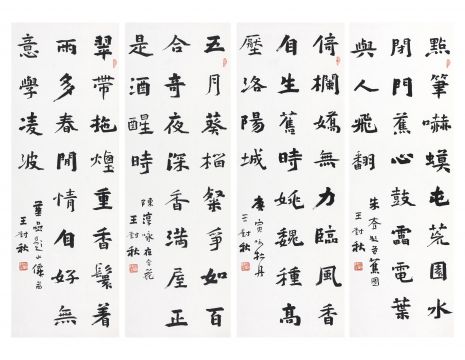 點筆嚇蟆屯荒園水
閉門蕉心鼓雷電葉
與人飛翻
朱耷 蕉圖
王討秋
倚欄嬌無力臨風香
自生舊時姚魏種高
壓洛陽城
庚寅 牡丹
王討秋
五月葵榴粲爭如百
合奇夜深香滿屋正
是酒醒時
陳淳詠夜合花
王討秋
翠帶拖煙重香鬟着
雨多春閒情自好無
意學凌波
王討秋